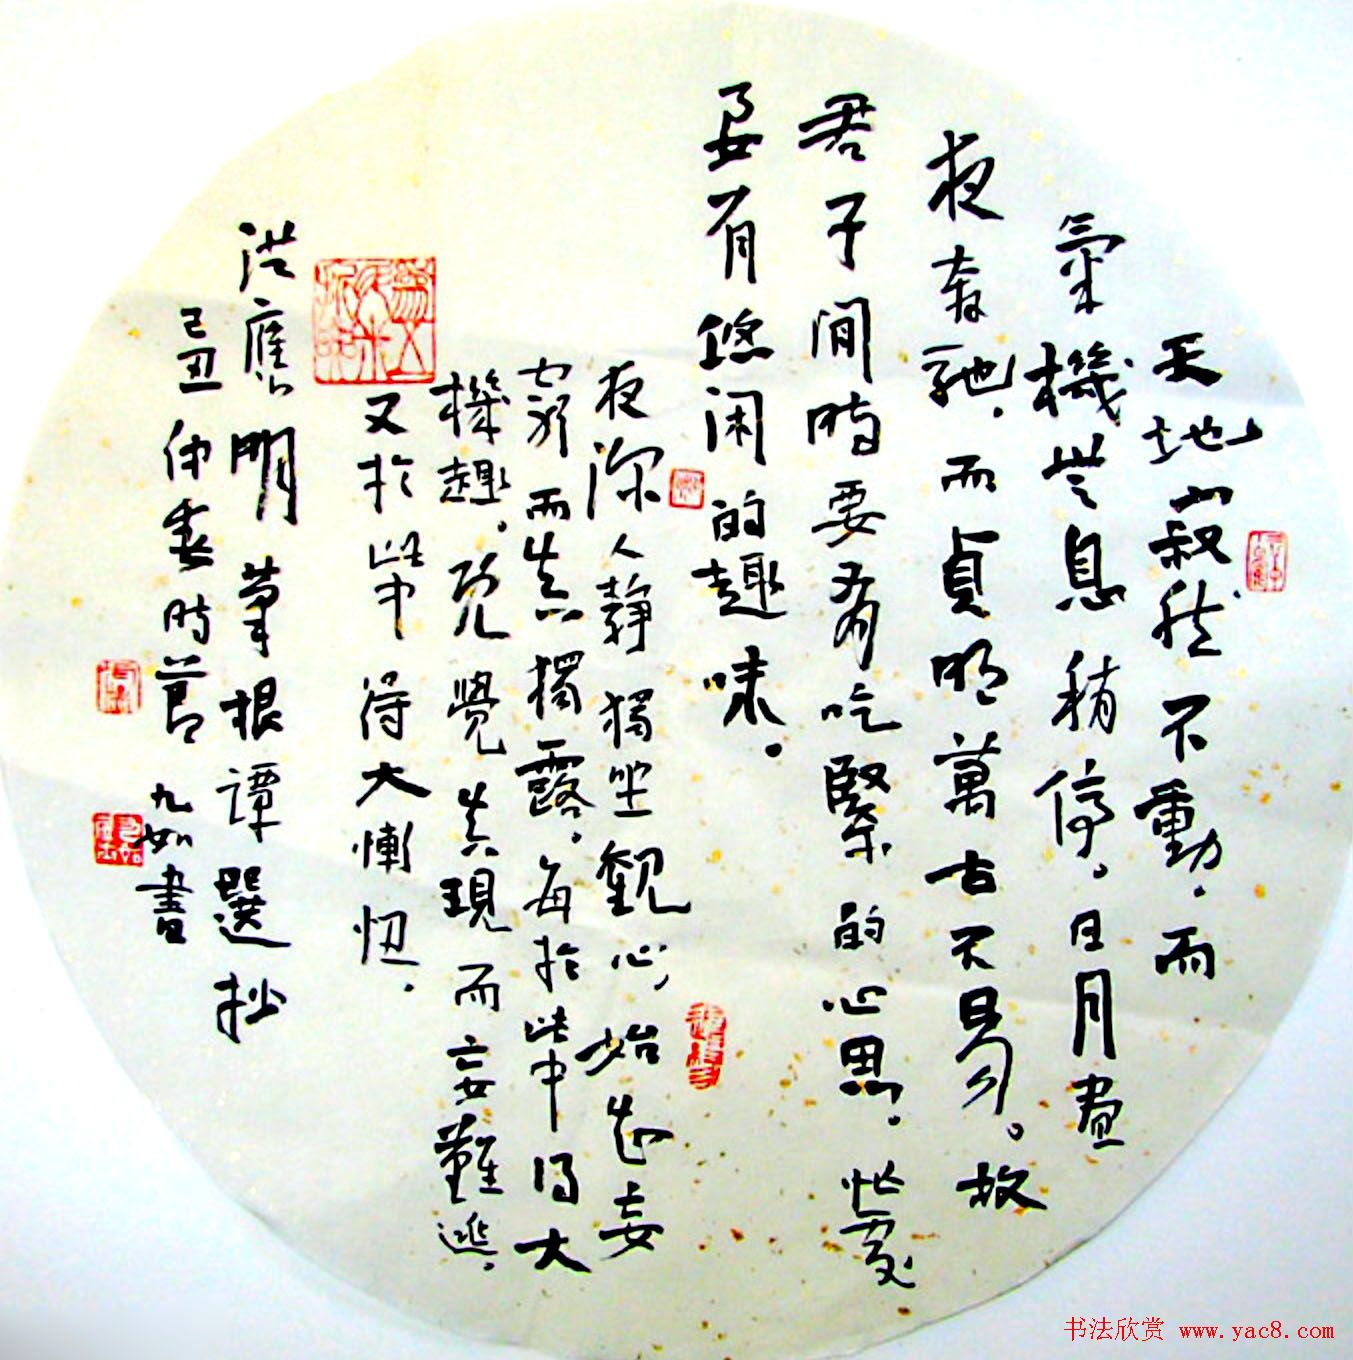 天地寂然不動，而
氣機無息稍停。日月晝
夜奔馳，而貞明萬古不易。故
君子閒時要有吃緊的心思，忙處
要有悠闲的趣味。
夜深人靜獨坐觀心，始知妄
窮而真獨露，每於此中得大
機趣。既覺真現而妄難逃，
又於此中得大慚忸。
洪應明菜根譚選抄
己丑仲春時節 九如書
书法欣赏 www.yac8.com